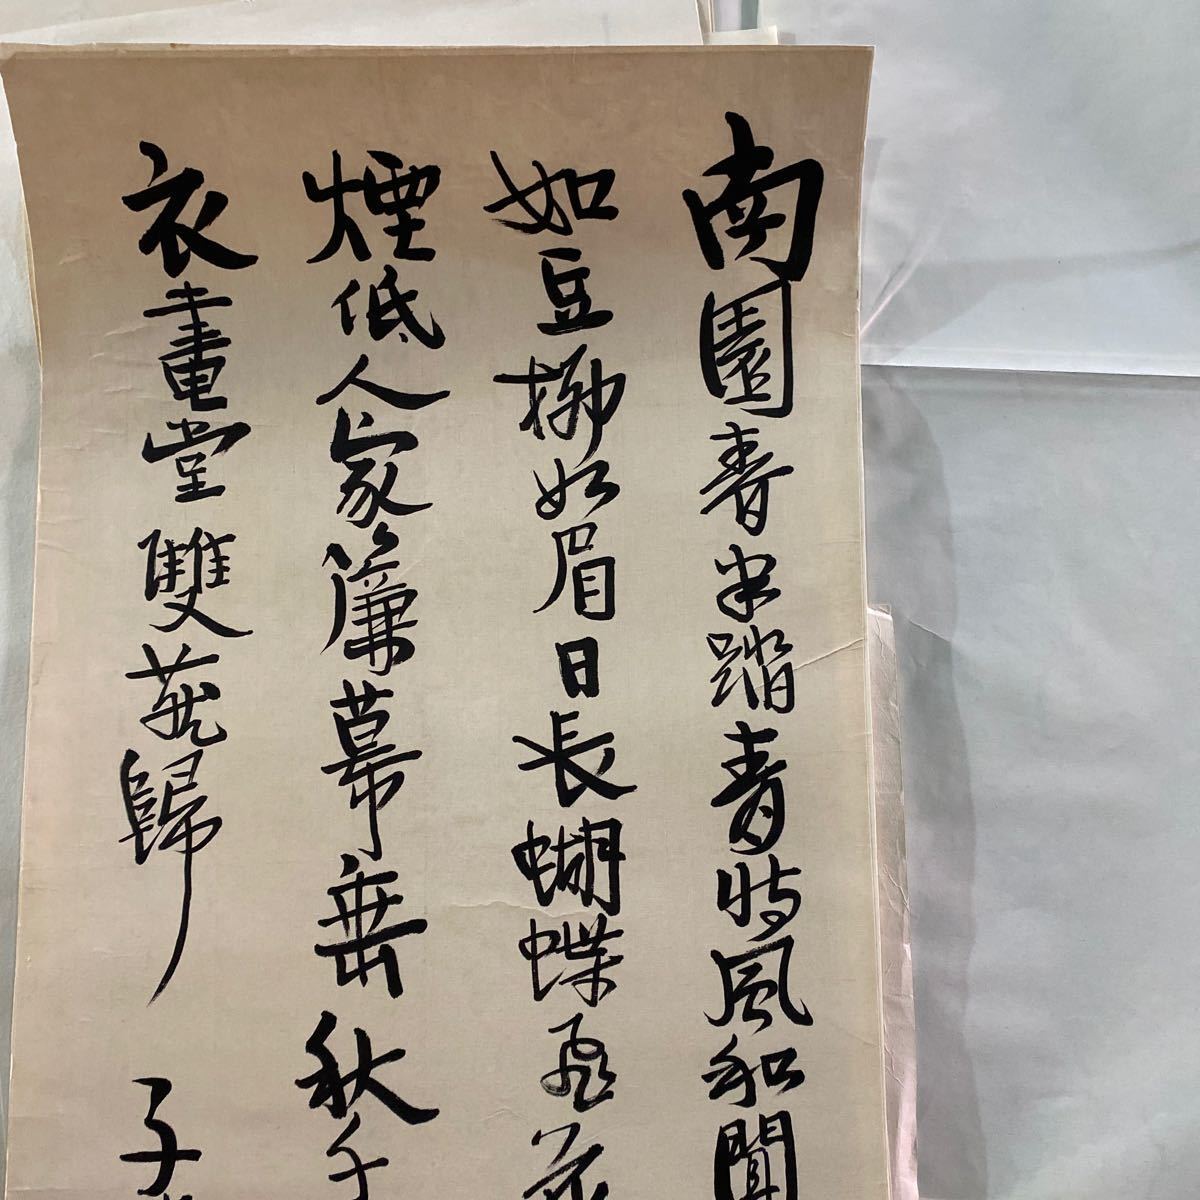 南園春半踏青時風和聞
如豆柳如眉日長蝴蝶飛花
煙低人家簾幕垂秋千
衣畫堂雙燕歸 子